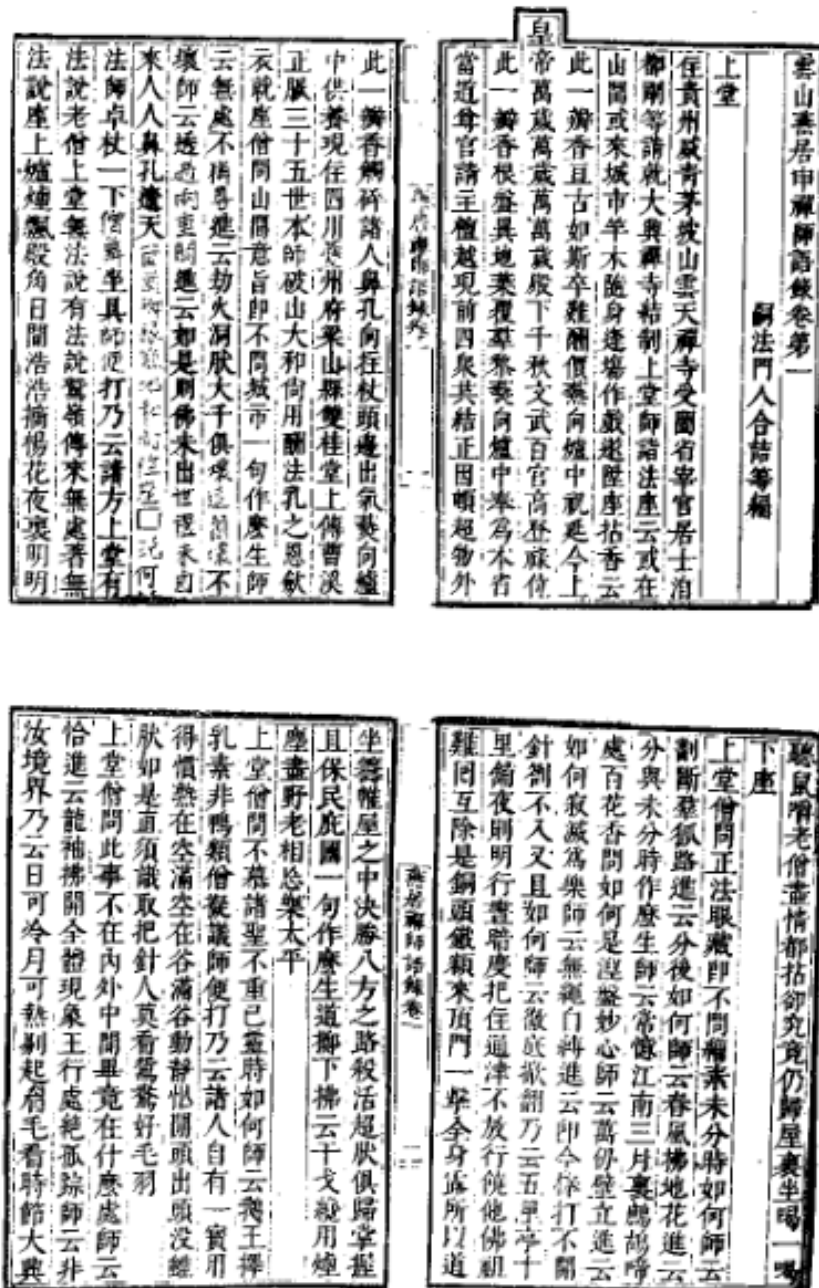 雲山燕居申禪師語錄卷第一
嗣法門人合誥等編
上堂
住貴州威青茅坡山雲天禪寺受闔省宰官居士洎
都劇等請就大興禪寺結制上堂師詣法座云或在
山間或來城市竿木隨身逢場作戲遂陞座拈香云
此一瓣香亘古如斯卒難酬價爇向爐中祝延今上
皇
帝萬歲萬歲萬萬歲殿下千秋文武百官高登祿位
此一瓣香根盤異地葉覆羣黎爇向爐中奉為本省
當道尊官請主檀越現前四眾共結正因頓超物外
燕居禪師語錄卷一
此一瓣香觸碎諸人鼻孔向拄杖頭邊出氣爇向爐
中供養現住四川夔州府梁山縣雙桂堂上傳曹溪
正脈三十五世本師破山大和尚用酬法乳之恩斂
衣就座僧問山間意旨即不問城市一句作麼生師
云無處不稱尊進云劫火洞然大千俱壞這箇壞不
壞師云透過向上關進云如是則佛未出世祖未西
來人人鼻孔遼天
法師卓杖一下僧歸坐具師便打乃云諸方上堂有
法說老僧上堂無法說有法說鷲嶺傳來無處著無
法說座上爐煙飄殿角日間浩浩摘楊花夜裏明明
聽鼠嚼老僧盡情都拈卻究竟仍歸屋裏坐喝一喝
下座
上堂僧問正法眼藏即不問緇素未分時如何師云
劃斷羣狐路進云分後如何師云春風拂地花進云
分與未分時作麼生師云常憶江南三月裏鷓鴣啼
處百花香問如何是涅槃妙心師云萬仞壁立進云
如何寂滅為樂師云無繩自縛進云即今條打不開
針劄不入又且如何師云徹底掀翻乃云五里亭十
里鋪夜則明行晝暗度把住道津不放行饒他佛祖
難回互除是銅頭鐵額來頂門一擊全身露所以道
燕居禪師語錄卷一
坐籌帷屋之中決勝八方之路殺活超然俱歸掌握
且保民庇國一句作麼生道擲下拂云干戈纔用煙
塵盡野老相忘樂太平
上堂僧問不慕諸聖不重已靈時如何師云鵝王擇
乳素非鴨類僧擬議師便打乃云諸人自有一寶用
得慣熟在空滿空在谷滿谷動靜忙閒頭出頭沒雖
然如是直須識取把針人莫看鴛鴦好毛羽
上堂僧問此事不在內外中間畢竟在什麼處師云
恰進云龍袖拂開全體現象王行處絕狐蹤師云非
汝境界乃云日可冷月可熱剔起眉毛看時節大興